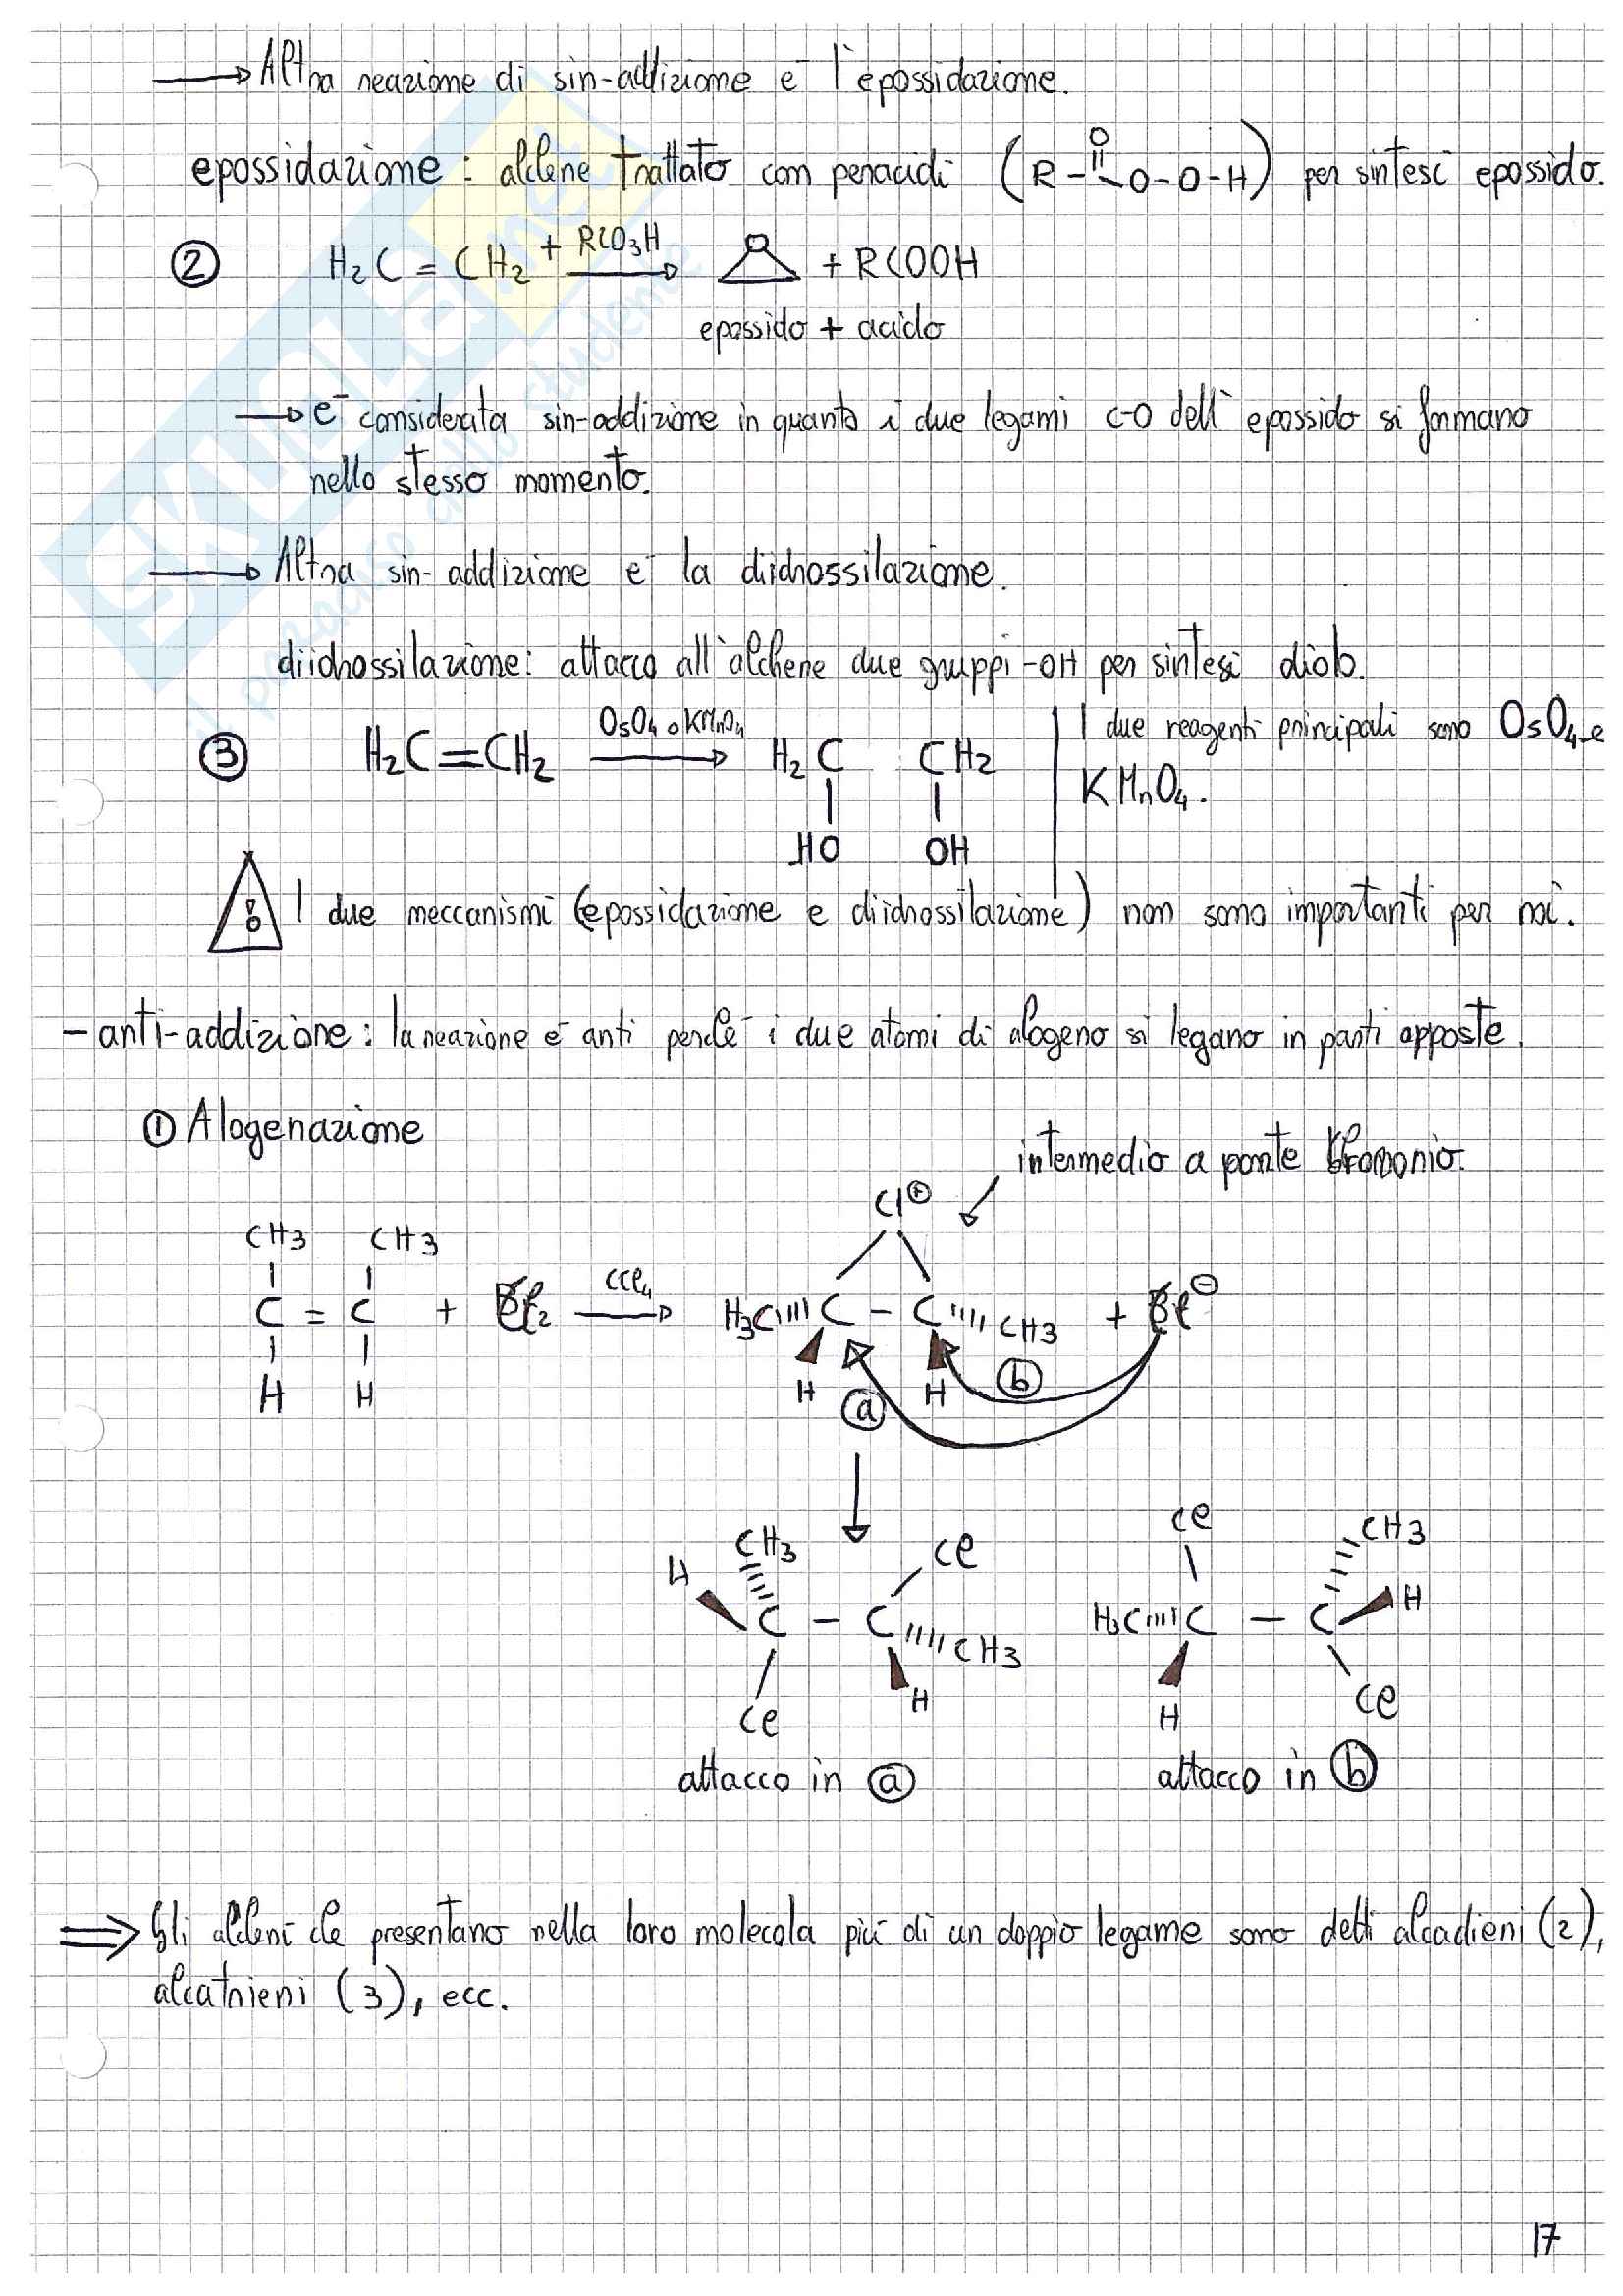 → Altra reazione di sin-addizione è l'epossidazione.
epossidazione: alchene trattato con peracidi (R-C(=O)-O-O-H) per sintesi epossido.
② H2C = CH2 + RCO3H → O + RCOOH
epossido + acido
→ è considerata sin-addizione in quanto i due legami C-O dell'epossido si formano
nello stesso momento.
→ Altra sin-addizione è la diidrossilazione.
diidrossilazione: attacco all'alchene due gruppi -OH per sintesi diolo.
③ H2C=CH2 OsO4 o KMnO4 → H2C CH2
HO OH
I due reagenti principali sono OsO4 e
KMnO4.
! I due meccanismi (epossidazione e diidrossilazione) non sono importanti per noi.
- anti-addizione: la reazione è anti perché i due atomi di alogeno si legano in parti opposte.
① Alogenazione
intermedio a ponte
Cl⊕
CH3 CH3
C = C + Cl2 CCl4 → H3C C - C CH3 + Cl⊖
H H H ⓐ H ⓑ
CH3 Cl Cl CH3
H C - C CH3 H3C C - C H
Cl H H Cl
attacco in ⓐ attacco in ⓑ
⇒ Gli alcheni che presentano nella loro molecola più di un doppio legame sono detti alcadieni (2),
alcatrieni (3), ecc.
17
SKUOLA.net
il paradiso dello studente